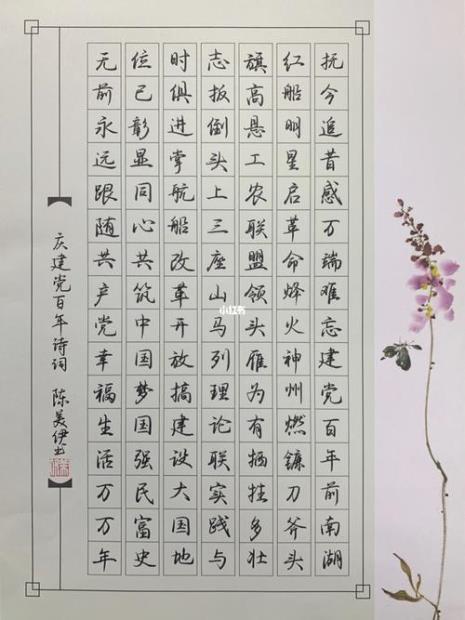 抚今追昔感万端难忘建党百年前南湖
红船明星启革命烽火神州燃镰刀斧头
旗高悬工农联盟领头雁为有牺牲多壮
志扳倒头上三座山马列理论联实践与
时俱进掌航船改革开放搞建设大国地
位已彰显同心共筑中国梦国强民富史
无前永远跟随共产党幸福生活万万年
庆建党百年诗词 陈美伊书
小红书